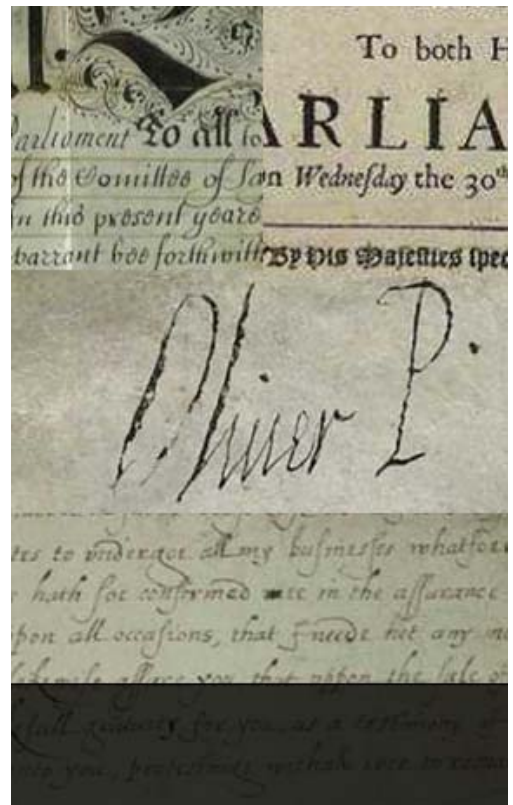 To both H
ARLIA
n Wednesday the 30th
By His Majesties spec
Parliament to all to
of the Comittee of
in this present yeare
warrant bee forthwith
Oliver P.
tes to vndergoe all my businesses whatsoe
hath soe confirmed mee in the assurance
pon all occasions, that I neede not any
likewise assure you, that uppon the sale of
for you, as a testimony of
you,